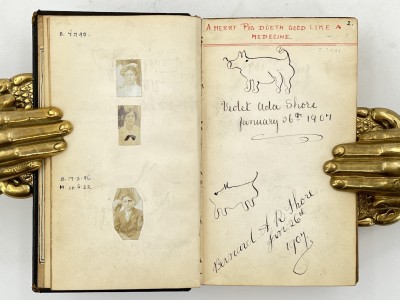 B. 4.7.90.
B. 17.2.96
M. 10.6.22
2.
A MERRY PIG DOETH GOOD LIKE A
MEDICINE.
Violet Ada Shore
January 26th 1907
Bernard A R Shore
Jan 26th
1907